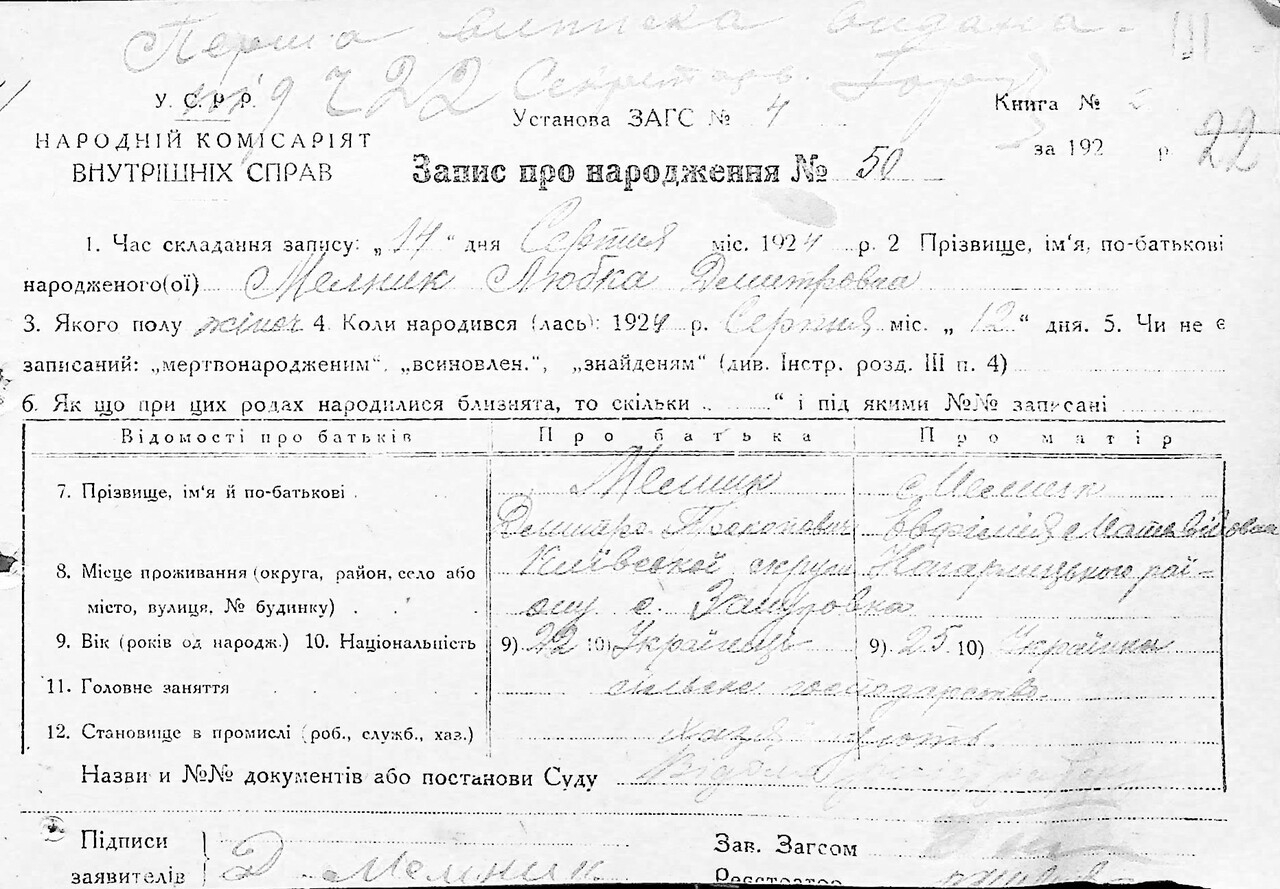 Перша виписка видана.
№ 9722 Секретарь
У. С. Р. Р.
НАРОДНІЙ КОМІСАРІЯТ
ВНУТРІШНІХ СПРАВ
Установа ЗАГС № 4
Книга №
за 192 р.
22
Запис про народження № 50
1. Час складання запису: „14“ дня Серпня міс. 1924 р. 2 Прізвище, ім'я, по-батькові
народженого(ої) Мелник Любка Дмитровна
3. Якого полу жіноч 4. Коли народився (лась): 1924 р. Серпня міс. „12“ дня. 5. Чи не є
записаний: „мертвонародженим“, „всиновлен.“, „знайденям“ (див. Інстр. розд. III п. 4)
6. Як що при цих родах народилися близнята, то скільки „ “ і під якими №№ записані
Відомості про батьків Про батька Про матір
7. Прізвище, ім'я й по-батькові Мелник Мелник
Прокопович Евфимія Матвіївна
8. Місце проживання (округа, район, село або Київської округи Кагарлицького рай-
місто, вулиця, № будинку) ону с.
9. Вік (років од народж.) 10. Національність 9) 22 10) Українець 9) 25 10) Українка
11. Головне заняття сільське господарство.
12. Становище в промислі (роб., служб., хаз.)
Назви и №№ документів або постанови Суду
Підписи
заявителів Д Мелник
Зав. Загсом
Реєстратор